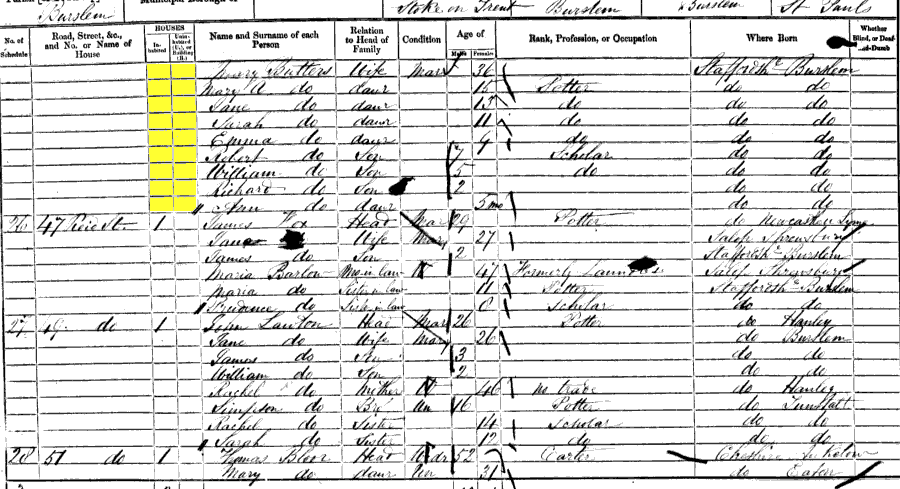 Burslem Stoke on Trent Burslem Burslem St Pauls
No. of Schedule Road, Street, &c., and No. or Name of House HOUSES Inhabited Uninhabited (U.), or Building (B.) Name and Surname of each Person Relation to Head of Family Condition Age of Males Females Rank, Profession, or Occupation Where Born Whether Blind, or Deaf-and-Dumb
Mary Butters Wife Mar 36 Staffordsh. Burslem
Mary A. do daur 15 Potter do do
Jane do daur 13 do do do
Sarah do daur 11 do do do
Emma do daur 9 do do do
Robert do Son 7 Scholar do do
William do Son 5 do do do
Richard do Son 2 do do
Ann do daur 5 mo do do
26 47 St. 1 James Fox Head Mar 29 Potter do Newcastle Lyme
Jane Wife Mar 27 Salop Shrewsbury
James do Son 2 Staffordsh. Burslem
Maria Barlow Mo. in law W 47 Formerly Laundress Salop Shrewsbury
Maria do Sister in law 11 Potter Staffordsh. Burslem
Prudence do Sister in law 8 Scholar do do
27 49 do 1 John Lawton Head Mar 26 Potter do Hanley
Jane do Wife Mar 26 do Burslem
James do Son 3 do do
William do Son 2 do do
Rachel do Mother W 46 no trade do Hanley
Simpson do Bro Un 16 Potter do Tunstall
Rachel do Sister 14 Scholar do do
Sarah do Sister 12 do do do
28 51 do 1 Thomas Bloor Head Widr 52 Carter Cheshire
Mary do daur Un 21 do Eaton